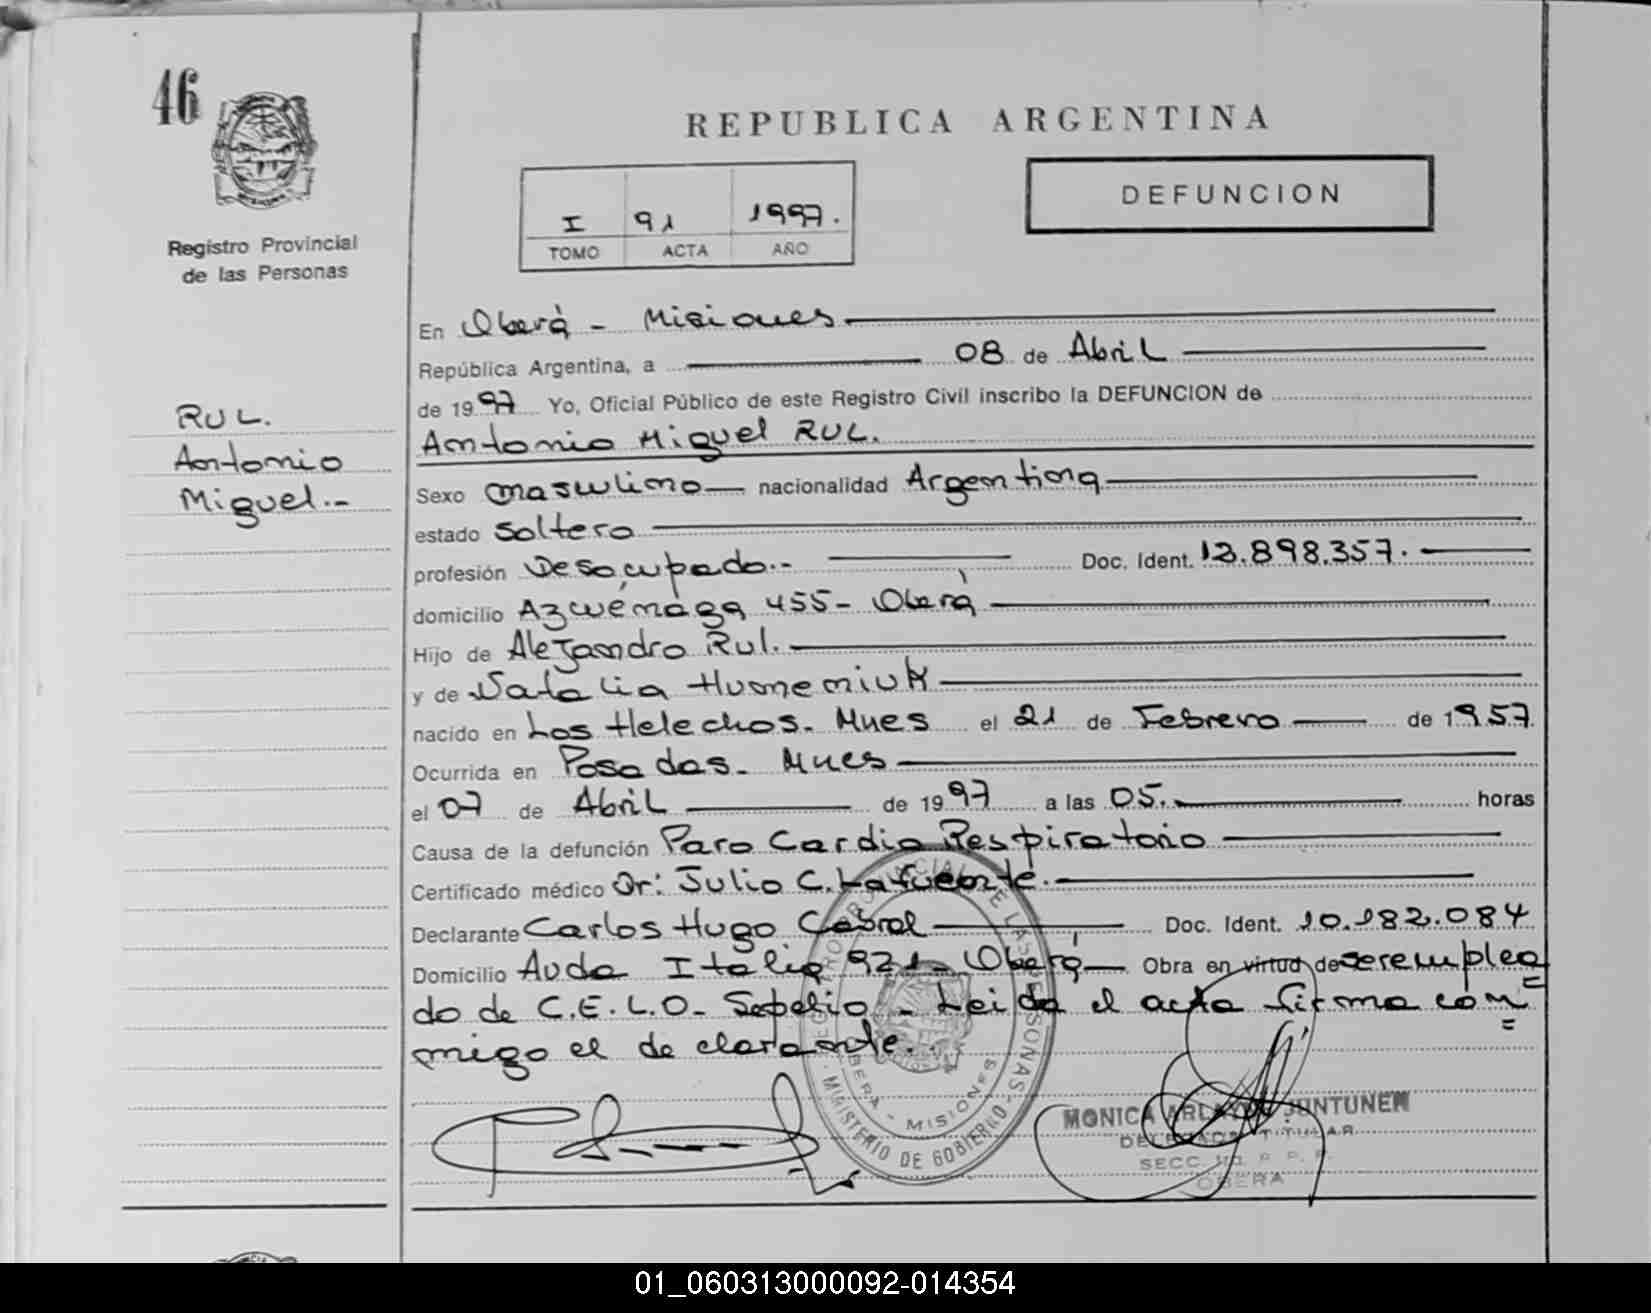 46
REPUBLICA ARGENTINA
DEFUNCION
I 91 1997.
TOMO ACTA AÑO
Registro Provincial
de las Personas
RUL.
Antonio
Miguel.-
En Oberá - Misiones
República Argentina, a 08 de Abril
de 1997 Yo, Oficial Público de este Registro Civil inscribo la DEFUNCION de
Antonio Miguel RUL.
Sexo masculino nacionalidad Argentina
estado Soltero
profesión Desocupado.- Doc. Ident. 13.898.357.
domicilio Azcuénaga 455- Oberá
Hijo de Alejandro Rul.
y de Natalia Humeniuk
nacido en Los Helechos. Mnes el 21 de Febrero de 1957
Ocurrida en Posadas. Mnes
el 07 de Abril de 1997 a las 05. horas
Causa de la defunción Paro Cardio Respiratorio
Certificado médico Dr: Julio C. Lafuente.
Declarante Carlos Hugo Cabral Doc. Ident. 10.182.084
Domicilio Avda Italia 921- Oberá Obra en virtud de ser emplea
do de C.E.L.O. Sepelio - Leida el acta firma con=
migo el declarante.
REGISTRO PROVINCIAL DE LAS PERSONAS
OBERA - MISIONES
MINISTERIO DE GOBIERNO
MONICA JUNTUNEN
DELEGADA TITULAR
SECC. R. P. P.
OBERA
01_060313000092-014354